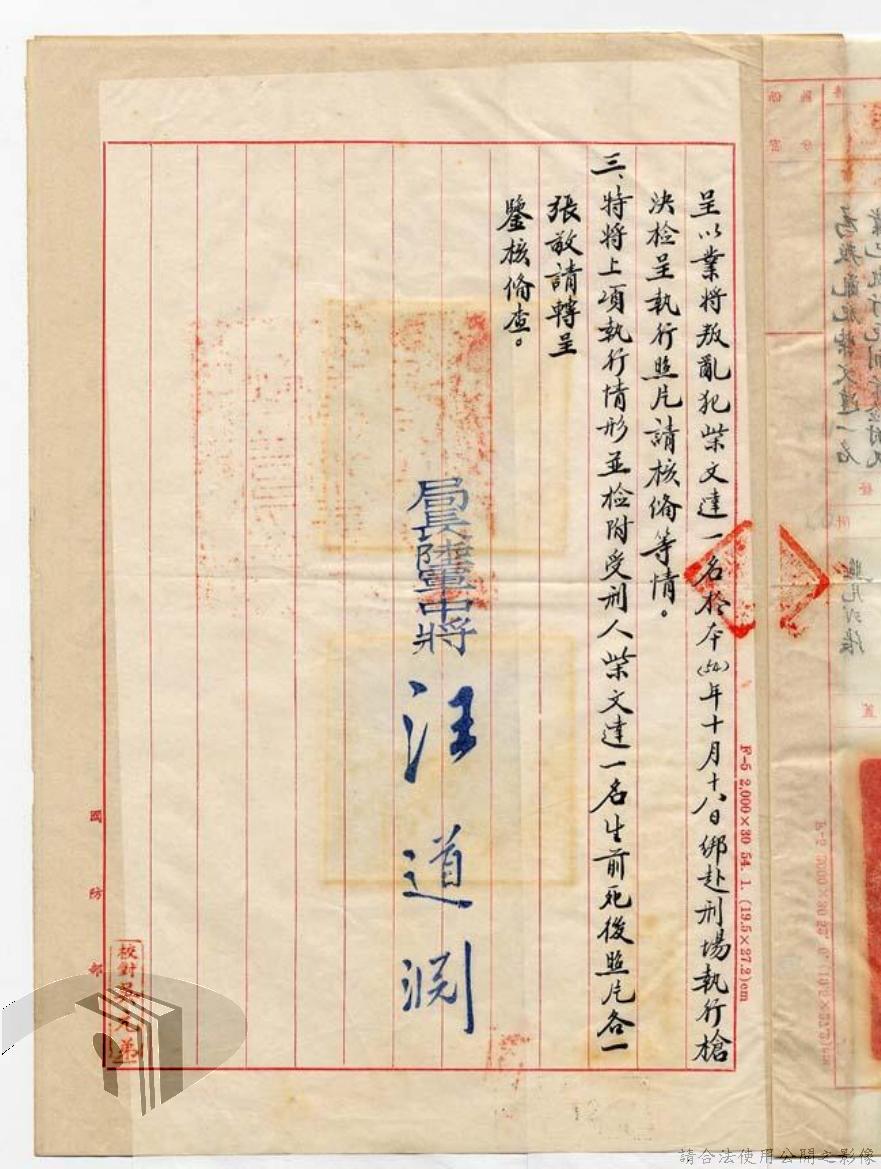 呈以業將叛亂犯柴文達一名於本(54)年十月十八日綁赴刑場執行槍
決檢呈執行照片請核備等情。
三、特將上項執行情形並檢附受刑人柴文達一名生前死後照片各一
張敬請轉呈
鑒核備查。
局長陸軍中將 汪道淵
F-5 2,000×30 54. 1. (19.5×27.2)cm
國防部
校對吳元弟
請合法使用公開之影像